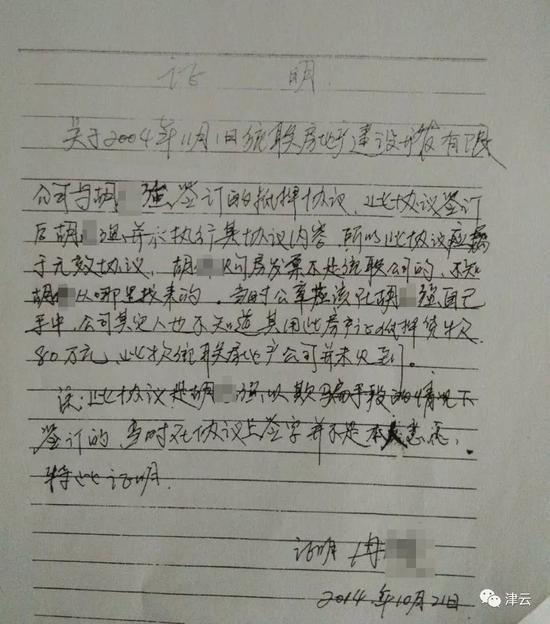 证 明
关于2004年11月1日统联房地产建设开发有限
公司与胡 强签订的抵押协议,此协议签订
后胡 强并未执行其协议内容,所以此协议应属
于无效协议,胡 购房发票不是统联公司的,不知
胡 从哪里找来的,当时公章应该在胡 强自己
手中,公司其它人也不知道其用此房产证抵押贷款
80万元,此款统联房地产公司并未见到。
注:此协议是胡 强以欺骗手段的情况下
签订的,当时在协议上签字并不是本人意愿,
特此证明.
证明
2014年10月21日
津云